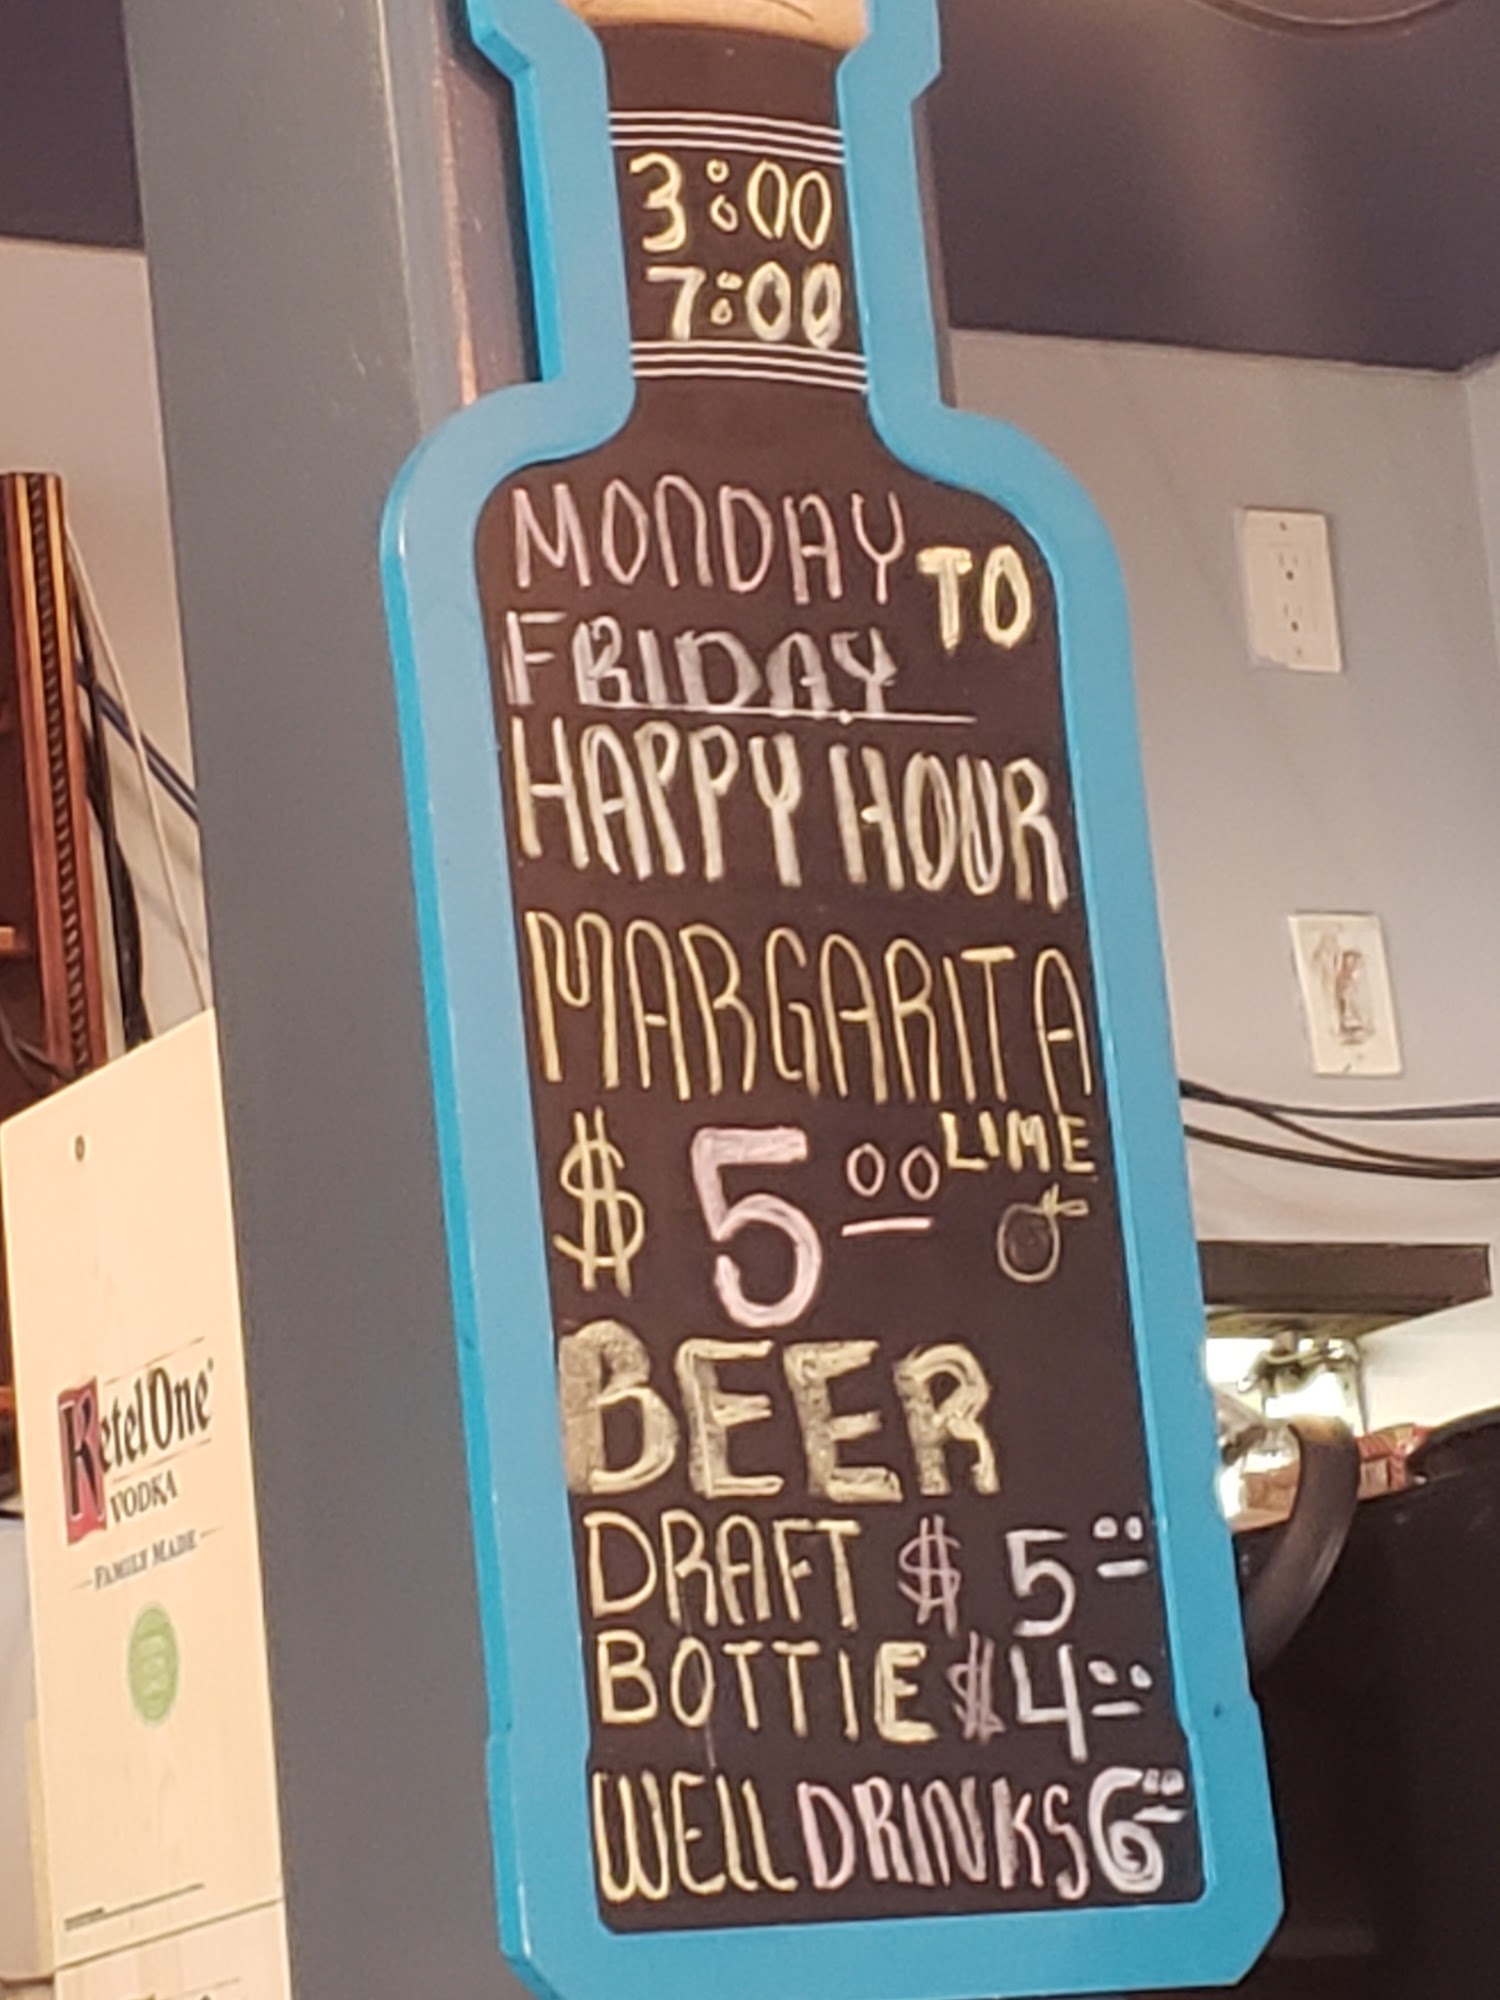 3:00
7:00
MONDAY TO
FRIDAY
HAPPY HOUR
MARGARITA
LIME
$ 5 00
BEER
DRAFT $ 5 00
BOTTlE $ 4 00
WEll DRINKS 6 00
Ketel One
VODKA
FAMILY MADE